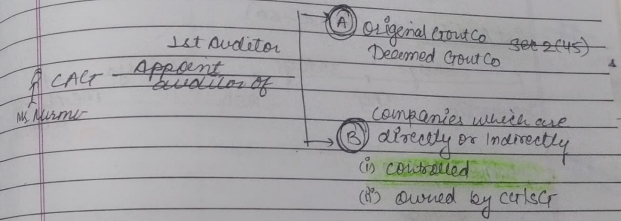 1st Auditor
CAG - Appoint
auditor of
(A) Origenal Govt Co
Deemed Govt Co
Sec 2(45)
(B) Companies which are
directly or Indirectly
(i) controlled
(ii) owned by CG/SG